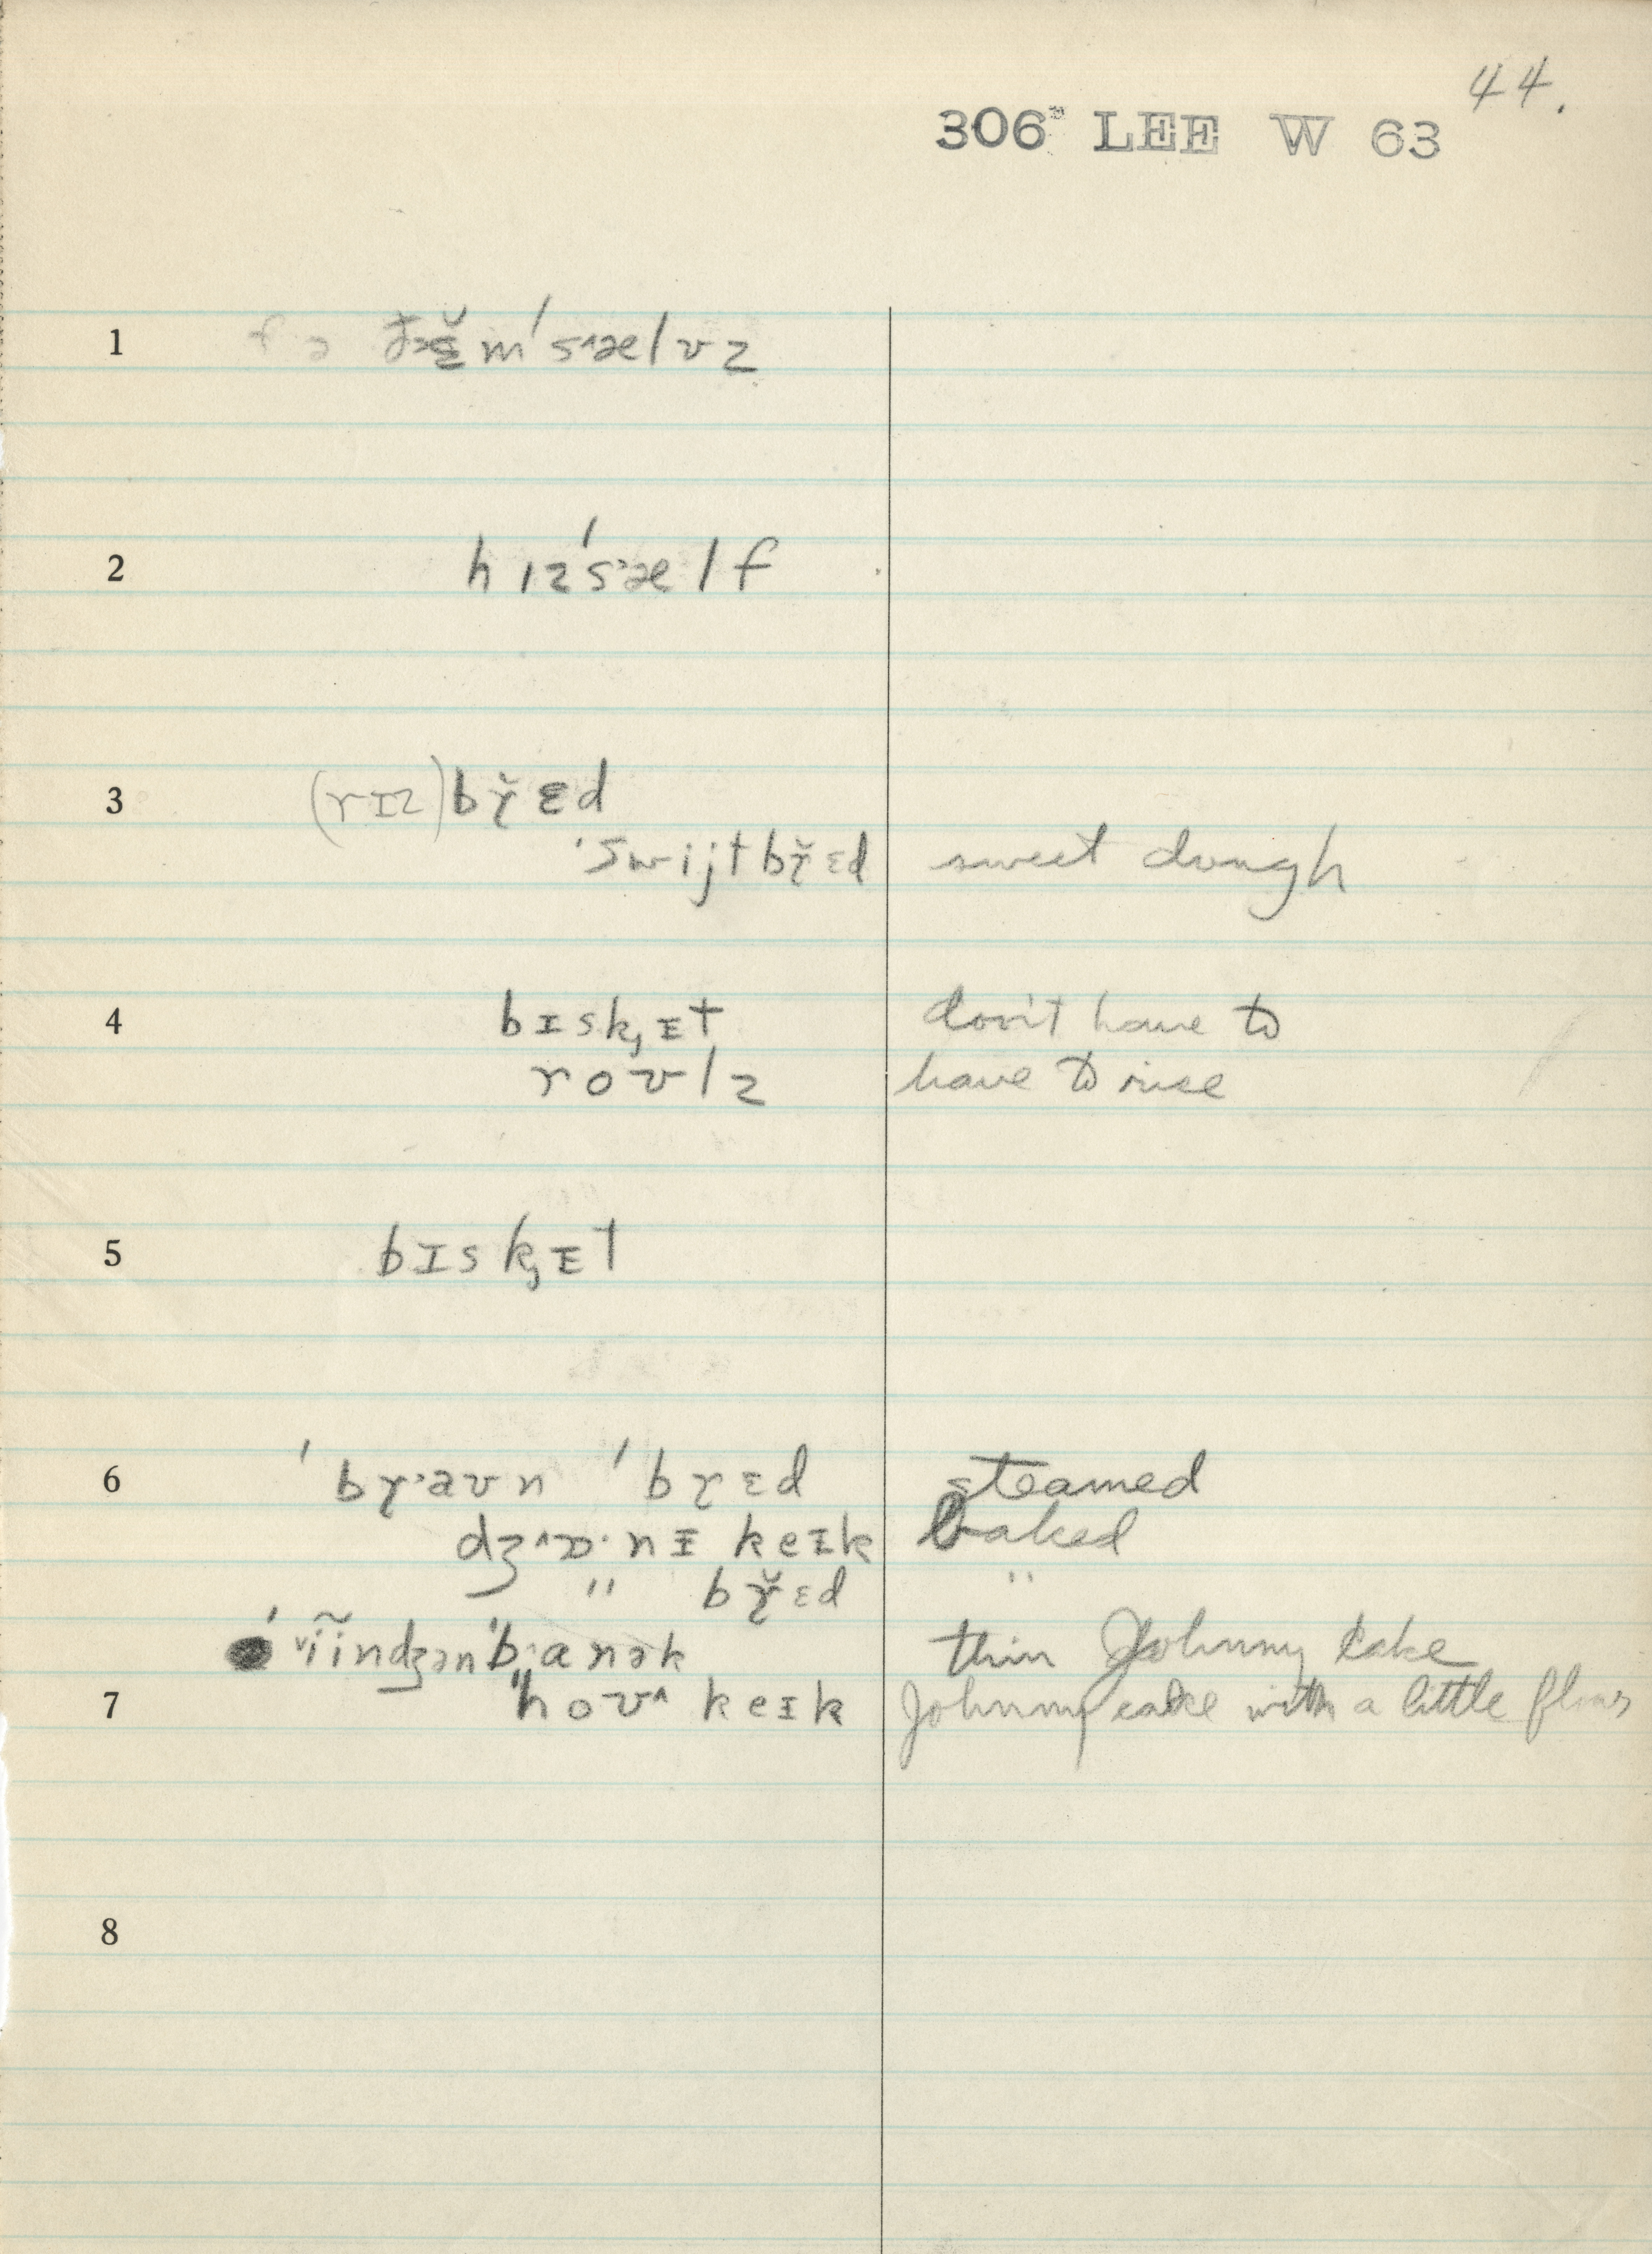 44.
306 LEE W 63
1 fə ðɛ̆m'sæ˄lvz
2 hɪz'sæ˃lf
3 (rɪz) br̆ɛd
'swijtbr̆ɛd sweet dough
4 bɪsk̡ɪt don't have to
roʊlz have to rise
5 bɪsk̡ɪt
6 'br˃aʊn 'brɛd steamed
dʒ˄ɒ·nɪ keɪk baked
" br̆ɛd "
'ɪ̃indʒən'banək thin Johnny cake
7 "hoʊ˄ keɪk Johnny cake with a little flour
8